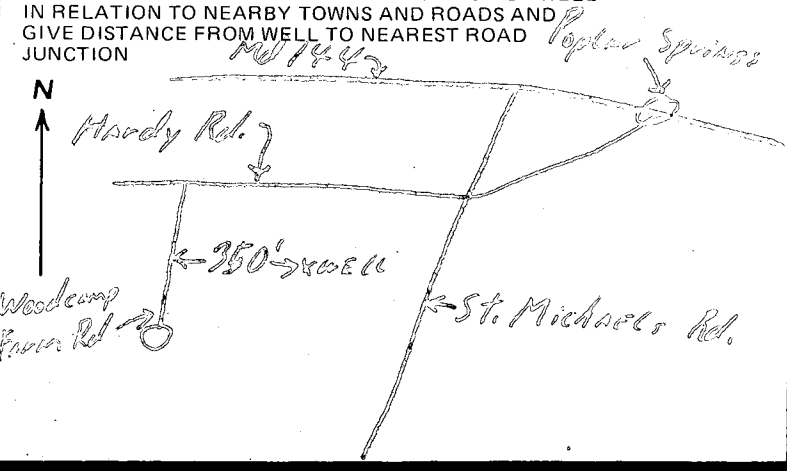 IN RELATION TO NEARBY TOWNS AND ROADS AND
GIVE DISTANCE FROM WELL TO NEAREST ROAD
JUNCTION
Poplar Springs
Md 144
N
Hardy Rd.
350' WELL
Woodcamp
Farm Rd
St. Michaels Rd.